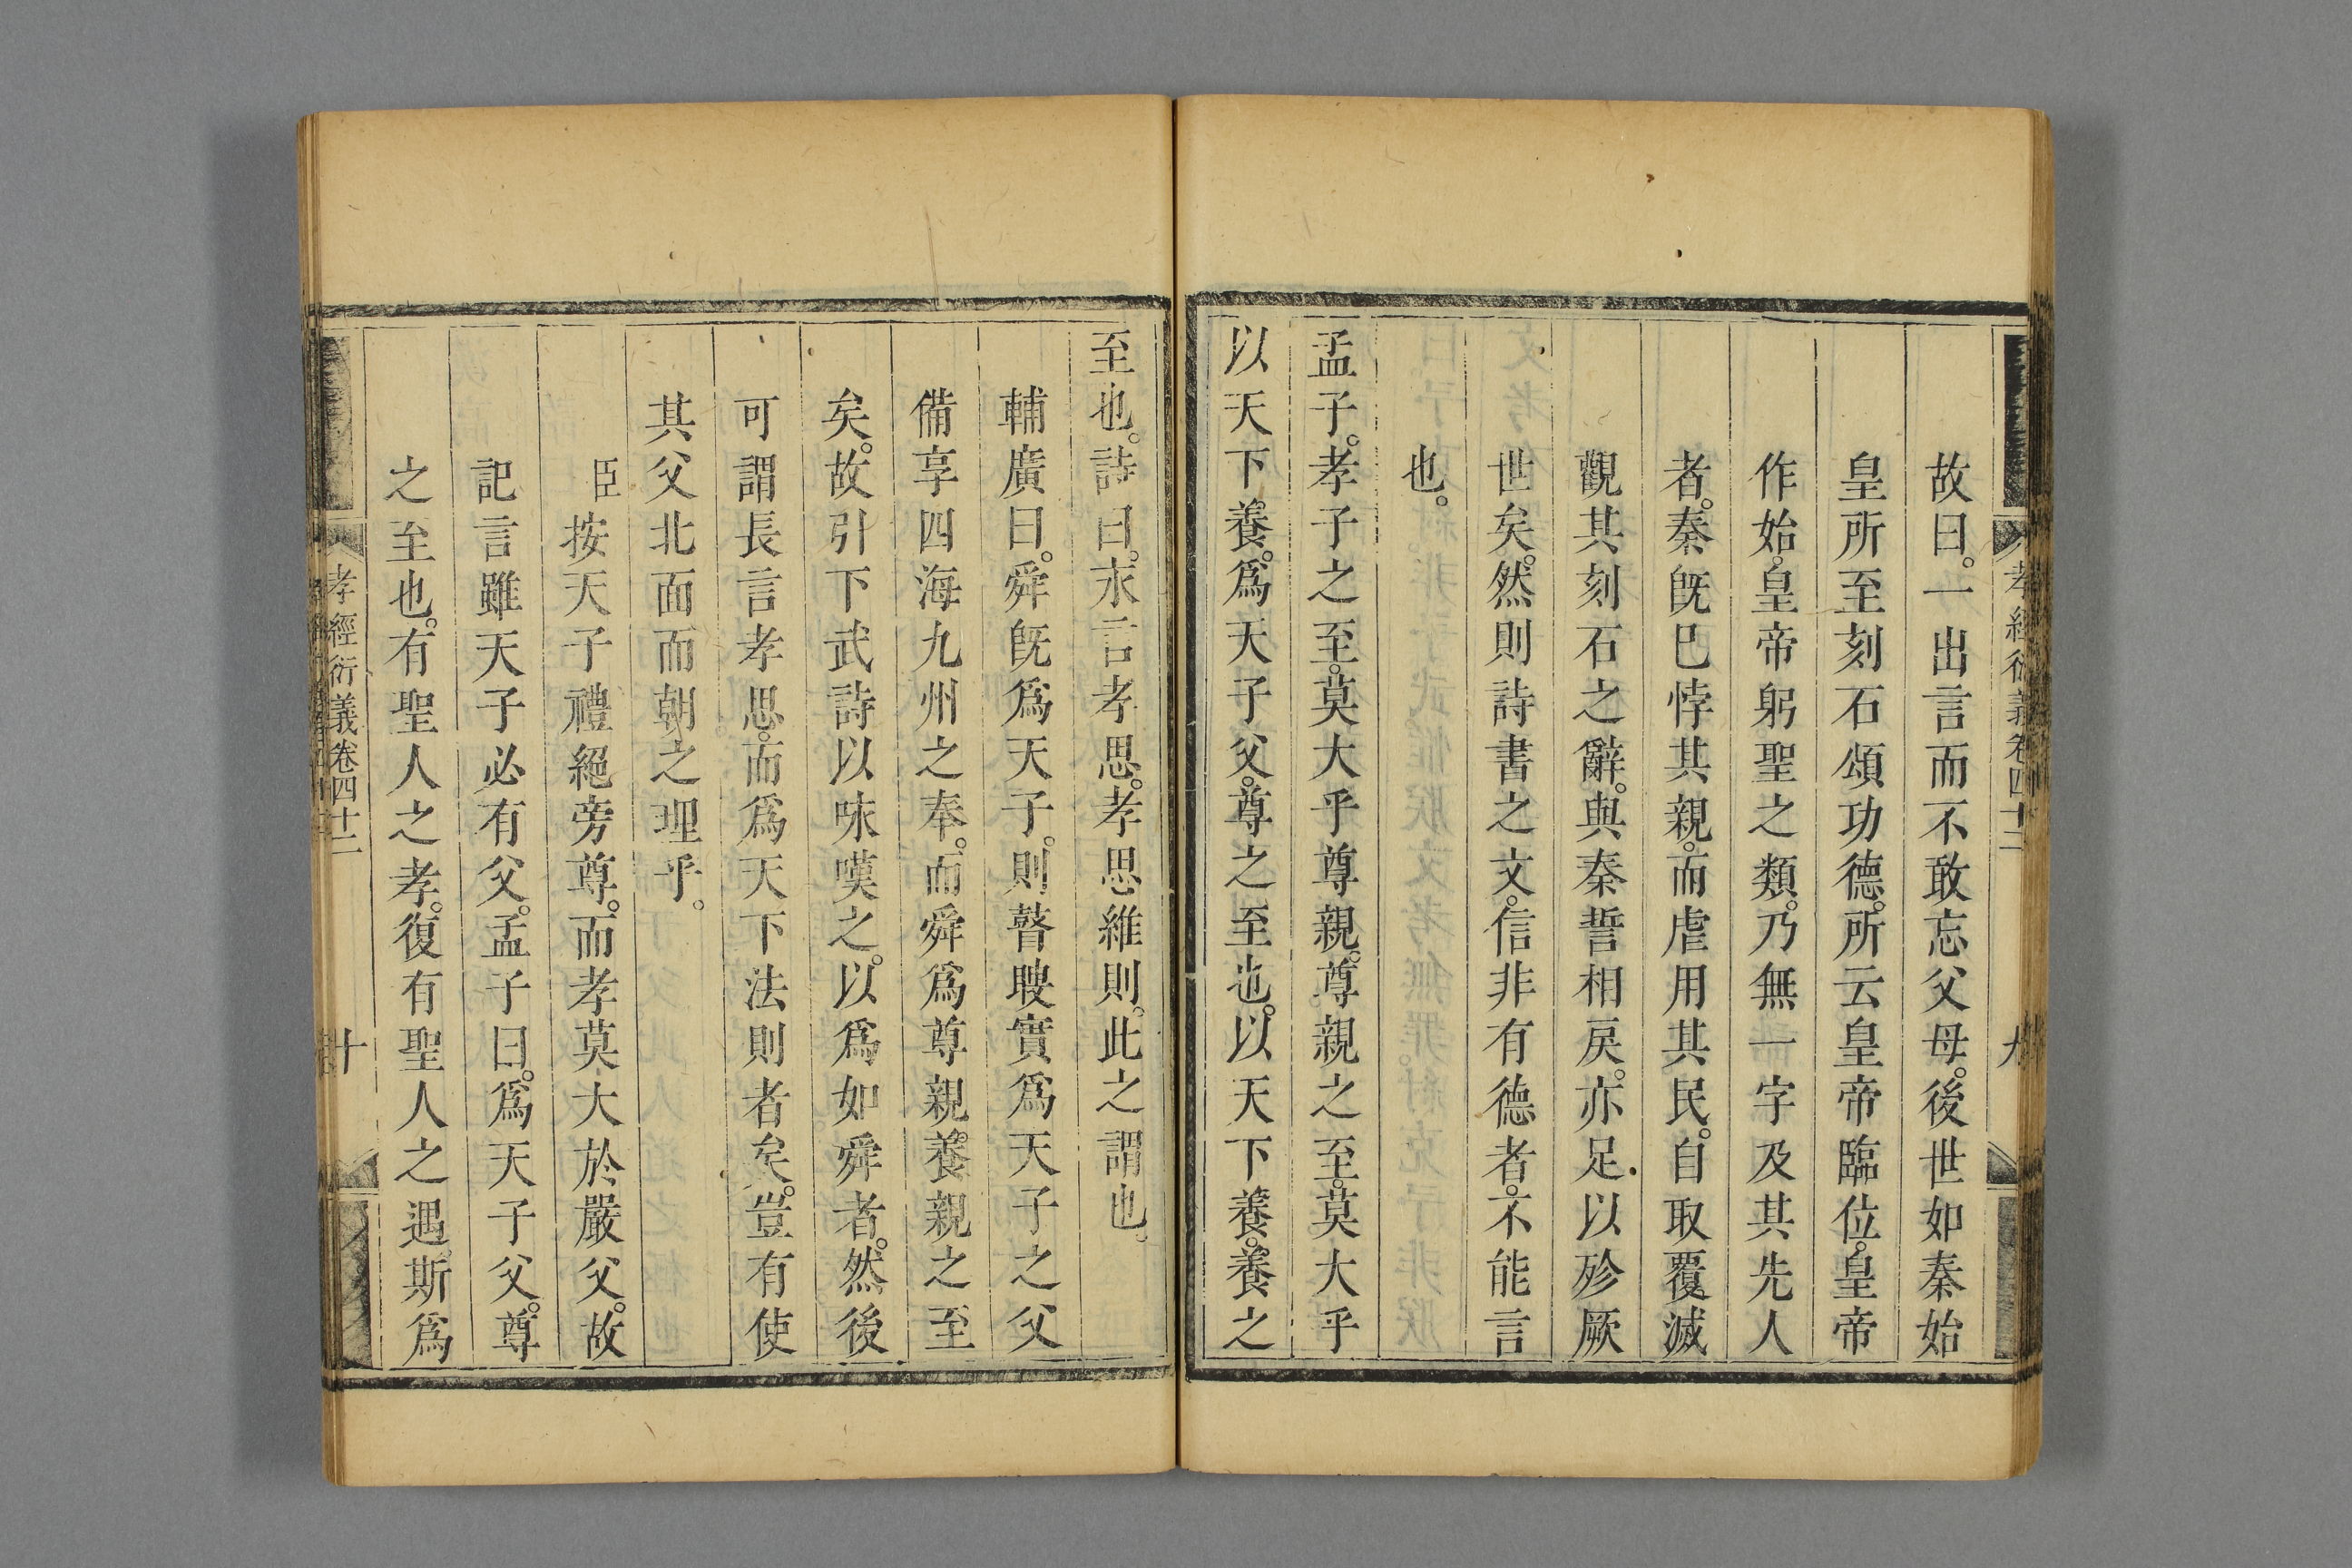 孝經衍義卷四十二
九
故曰。一出言而不敢忘父母。後世如秦始
皇所至刻石頌功德。所云皇帝臨位。皇帝
作始。皇帝躬聖之類。乃無一字及其先人
者。秦旣巳悖其親。而虐用其民。自取覆滅
觀其刻石之辭。與秦誓相戾。亦足以殄厥
世矣。然則詩書之文。信非有德者。不能言
也。
孟子。孝子之至。莫大乎尊親。尊親之至。莫大乎
以天下養。爲天子父。尊之至也。以天下養。養之
至也。詩曰。永言孝思。孝思維則。此之謂也。
輔廣曰。舜旣爲天子。則瞽瞍實爲天子之父
備享四海九州之奉。而舜爲尊親養親之至
矣。故引下武詩以咏嘆之。以爲如舜者。然後
可謂長言孝思。而爲天下法則者矣。豈有使
其父北面而朝之理乎。
臣按天子禮絕旁尊。而孝莫大於嚴父。故
記言雖天子必有父。孟子曰。爲天子父。尊
之至也。有聖人之孝。復有聖人之遇。斯爲
孝經衍義卷四十二
十